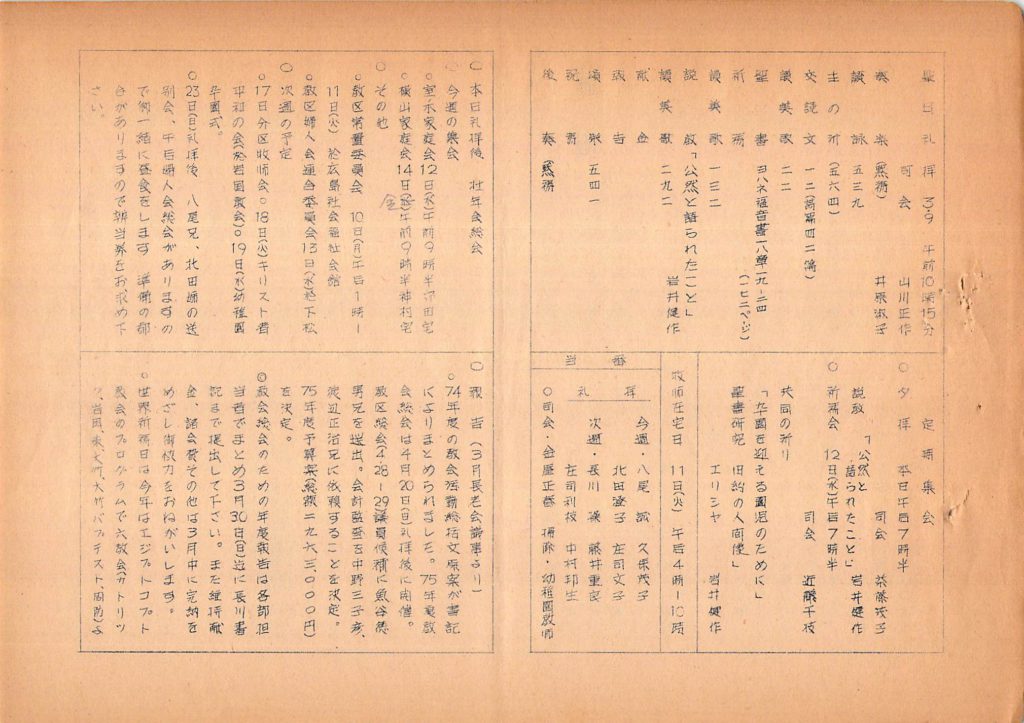 聖日礼拝 3/9 午前10時15分
司会 山川正作
奏楽(黙祷) 井原淑子
讃詠 五三九
主の祈(五六四)
交読文 一二(詩篇四二篇)
讃美歌 二二
聖書 ヨハネ福音書一八章一九-二四
(一七二ページ)
祈祷
讃美歌 一三二
説教 「公然と語られたこと」
岩井健作
讃美歌 二九二
献金
報告
頌栄 五四一
祝祷
後奏(黙祷)
定期集会
○夕拝 本日午后7時半
司会 茶藤茂子
説教 「公然と語られたこと」 岩井健作
○祈祷会 12日(水)午后7時半
司会 近藤千枝
共同の祈り
「卒園を迎える園児のために」
聖書研究 旧約の人間像」
エリシヤ 岩井健作
牧師在宅日 11日(火) 午后4時-10時
当番
礼拝
今週・八尾誠 久保茂子
北田澄子 庄司文子
次週・長川藤井重良
庄司利枝 中村邦生
○司会・金屋正 掃除・幼稚園教師
○本日礼拝後 壮年会総会
○今週の集会
室木家庭会12日(水)午前9時半沖田宅
横山家庭会14日(金)午前9時半神村宅
○その他
教区常置委員会 10日(月)午后1時-
11日(火) 於広島社会福祉会館
教区婦人会連合委員会13日(木)於下松
○次週の予定
17日分区牧師会。18日(火)キリスト者
平和の会(於岩国教会)。19日(水)幼稚園
卒園式。
○23日(日)礼拝後 八尾兄、北田姉の送
別会、午后婦人会総会がありますの
で御一緒に昼食をします 準備の都
合がありますので弁当券をお求め下
さい。
○報告(3月長老会議事より)
○74年度の教会活動総括文原案が書記
によりまとめられました。75年度教
会総会は4月20日(日)礼拝後に開催。
教区総会(4.28-29)議員候補に魚谷
男兄を選出。会計監査を中野三子彦、
渡辺正治兄に依頼することを決定。
75年度予算案(総額二九六三、〇〇〇円)
を決定。
◎教会総会のための年度報告は各部担
当者でまとめ3月30日(日)迄に長川書
記まで提出して下さい。また維持献
金、諸会費その他は3月中に完納を
めざし御協力をおねがいします。
○世界祈祷日は今年はエジプトコプト
教会のプログラムで六教会(カトリッ
ク、岩国、東、大竹、大竹バプテスト、周防)よ